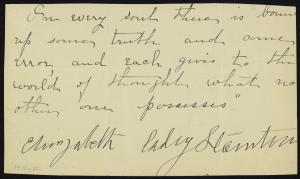 In every soul there is bound
up some truth and some
error, and each gives to the
world of thought what no
other one possesses"
Elizabeth Cady Stanton